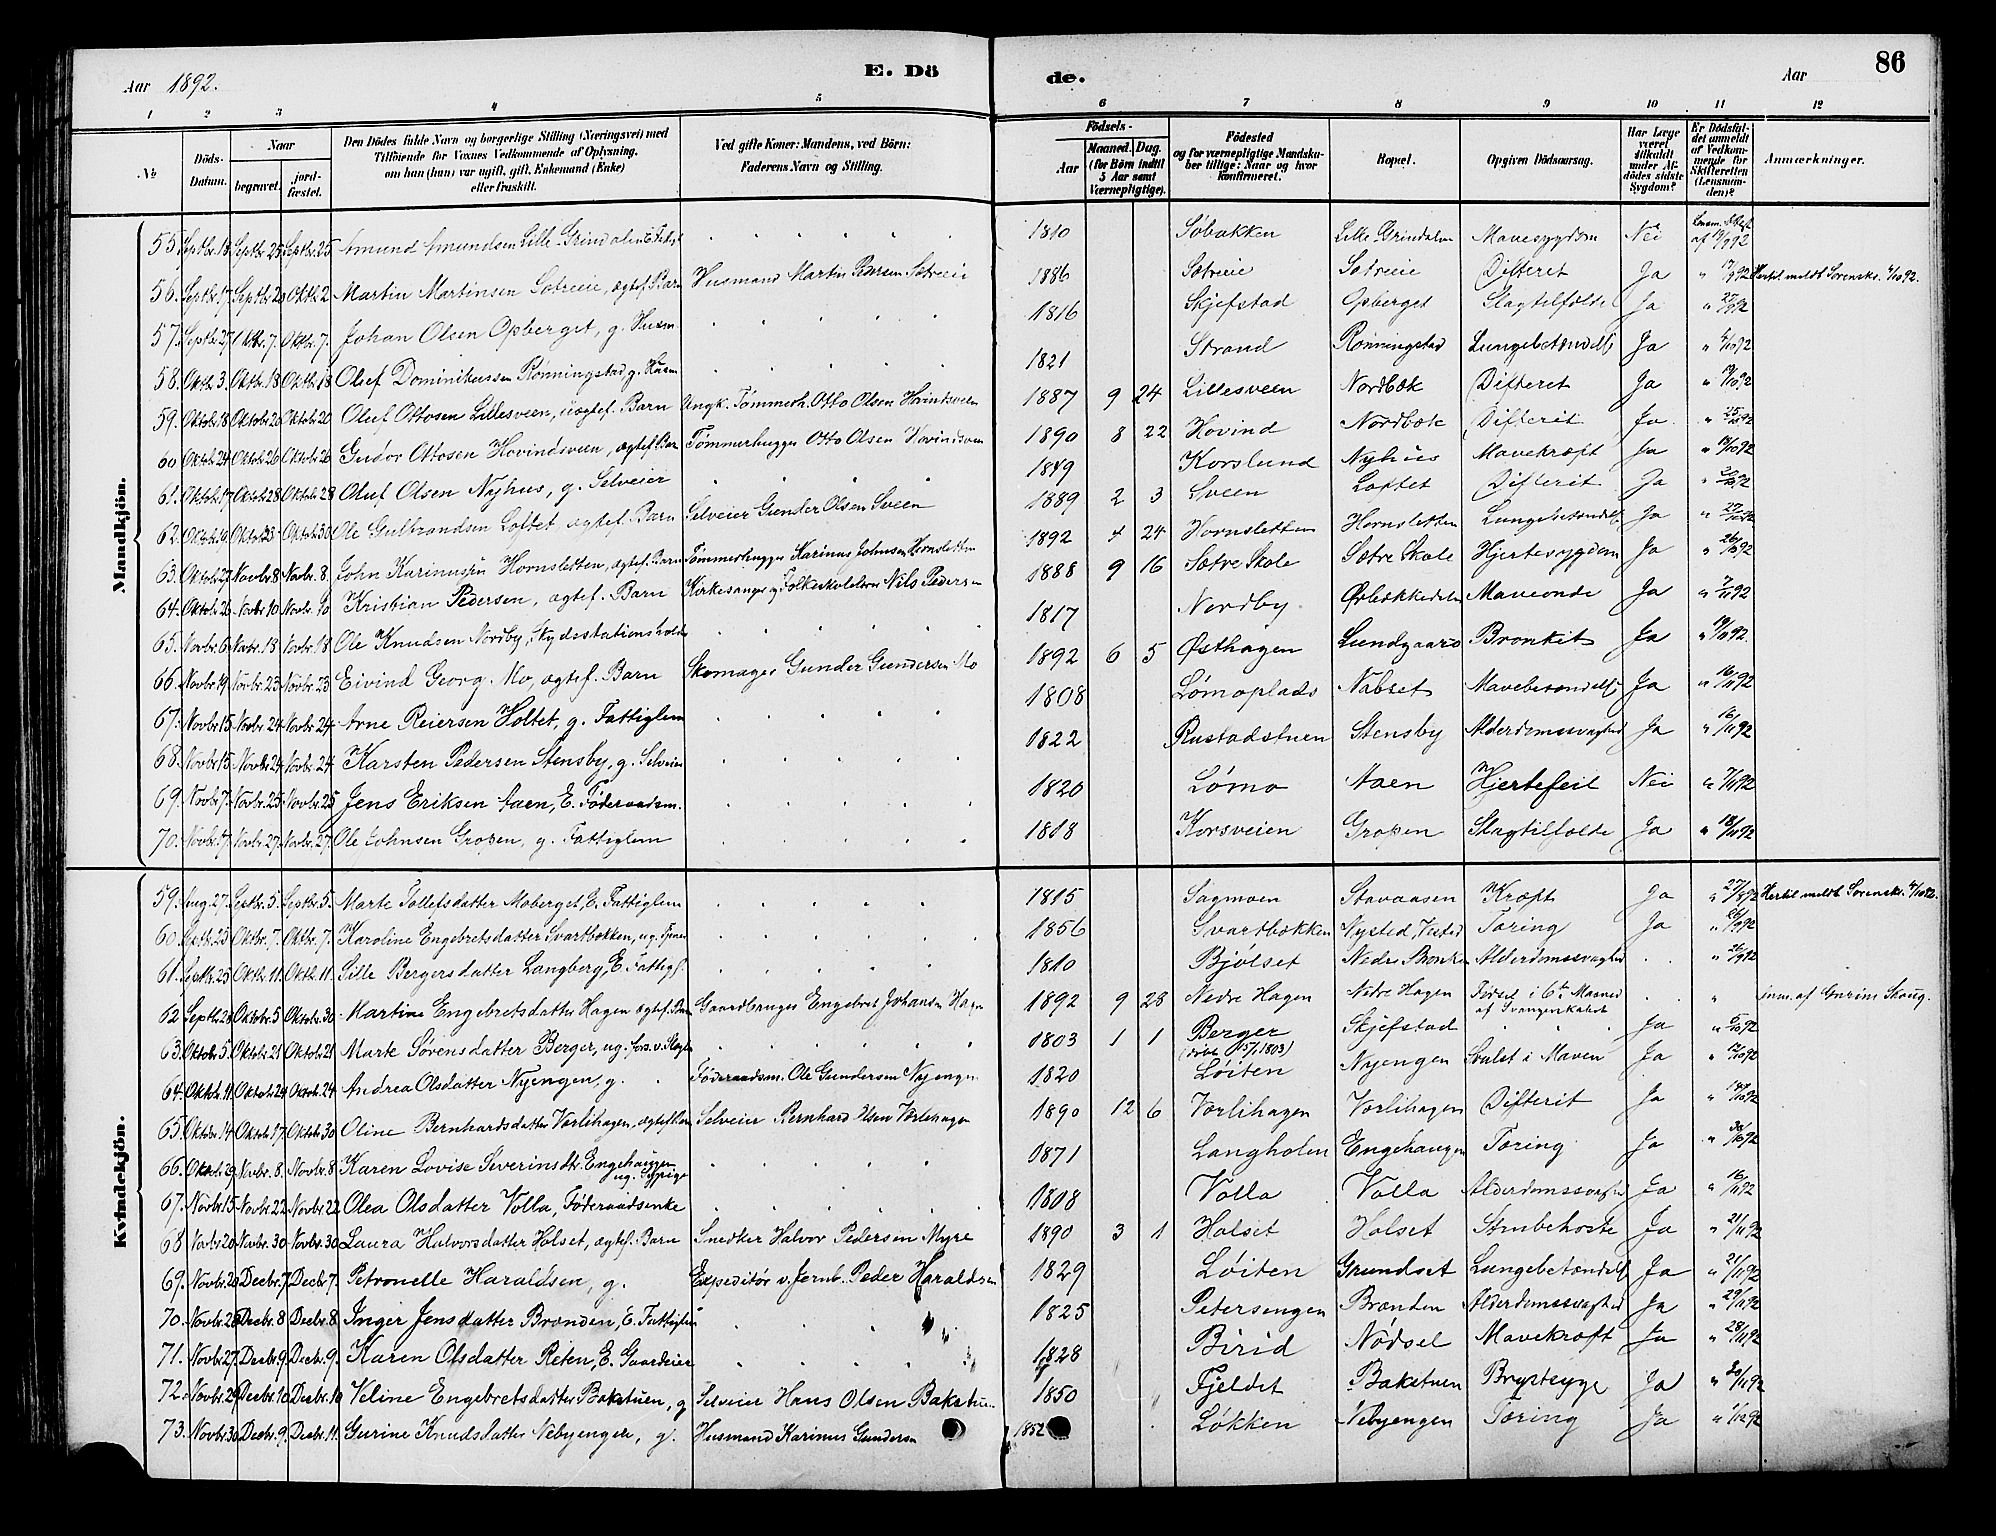 Aar 1892. E. Dö de. Aar 86
1 2 3 4 5 6 7 8 9 10 11 12
№ Döds-Datum. Naar begravet. jord-fæstet. Den Dödes fulde Navn og borgerlige Stilling (Næringsvei) med Tilföiende for Voxnes Vedkommende af Oplysning, om han (hun) var ugift, gift, Enkemand (Enke) eller fraskilt. Ved gifte Koner: Mandens, ved Börn: Faderens Navn og Stilling. Födsels- Aar Maaned. Dag. (for Börn indtil 5 Aar samt Værnepligtige). Födested og for værnepligtige Mandskaber tillige: Naar og hvor konfirmeret. Bopæl. Opgiven Dödsaarsag. Har Læge været tilkaldt under Afdödes sidste Sygdom? Er Dödsfaldet anmeldt af Vedkommende for Skifteretten (Lensmanden)? Anmærkninger.
Mandkjön.
55. Septbr. 18 Septbr. 25 Septbr. 25 Amund Amundsen Lille Grindalen E. 1810 Søbakken Lille Grindalen Mavesygdom Nei
56. Septbr. 17 Septbr. Oktb. 2 Martin Martinsen Sætreeie, ægtef. Barn Husmand Martin Pedersen Sætreeie 1886 Sætreeie Sætreeie Difterit Ja " 17/9 92
57. Septbr. 27 Oktbr. 7. Oktbr. 7. Johan Olsen Opberget, g. Husm. 1816 Skjefstad Opberget Slagtilfælde Ja " 27/9 92
58. Oktb. 3. Oktbr. 18 Oktbr. 18 Oluf Dominikussen Rønningstad g. Husm 1821 Strand Rønningstad Lungebetændelse Ja
59. Oktob. 18 Oktobr. 20 Oktobr. 20 Oluf Ottosen Lillesveen, uægtef. Barn Ungk. Tømmerh. Otto Olsen Hovindsveen 1887 9 24 Lillesveen Nordbæk Difterit Ja " 19/10 92
60 Oktob. 24 Oktobr. 26 Oktobr. 26 Gudor Ottosen Hovindsveen, ægtef. Barn Tømmerhugger Otto Olsen Hovindsveen 1890 8 22 Hovind Nordbæk Difterit Ja.
61. Oktob. 17 Oktob. 28 Oktobr. 28 Oluf Olsen Nyhus, g. Selveier 1849 Korslund Nyhus Mavekræft Ja
62. Oktob. Oktob. Oktobr. 30 Ole Gulbrandsen Loftet ægtef. Barn Selveier Gunder Olsen Sveen 1889 2 3 Sveen Loftet Difterit Ja
63. Oktob. 27 Novbr. 8 Novbr. 8. John Karinusen Hornsletten, ægtef. Barn Tømmerhugger Karinus Johnsen Hornsletten 1892 4 24 Hornsletten Hornsletten Lungebetændelse Ja
64. Oktob. 26 Novbr. 10 Novbr. 10 Kristian Pedersen, ægtef. Barn Kirkesanger og Folkeskolelærer Nils Pedersen 1888 9 16 Sætre Skole Sætre Skole Hjertesygdom Ja
65. Novbr. 6 Novbr. 18 Novbr. 18 Ole Knudsen Nordby, Skydsstationsholder 1817 Nordby Ørbækkedalen Maveonde Ja " 7/11 92
66. Novbr. 19 Novbr. 23 Novbr. 23 Eivind Georg Mo, ægtef. Barn Skomager Gunder Gundersen Mo 1892 6 5 Østhagen Lundgaard Bronkit Ja " 19/11 92.
67. Novbr. 15 Novbr. 24 Novbr. 24 Arne Reiersen Holtet, g. Fattiglem 1808 Lømoplads Nabset Mavebetændelse Ja " 16/11 92
68. Novbr. 15 Novbr. 24 Novbr. 24 Karsten Pedersen Stensby, g. Selveier 1822 Rustadstuen Stensby Alderdomssvaghed Ja " 16/11 92
69. Novbr. 7 Novbr. 25 Novbr. 25 Jens Eriksen Aaen, E. Føderaadsm. 1820 Lømo Aaen Hjertefeil Nei " 7/11 92
70. Novbr. 17. Novbr. 27. Novbr. 27. Ole Johnsen Gropen, g. Fattiglem 1818 Korsveien Gropen Slagtilfælde Ja " 18/11 92
Kvindekjön.
59. Aug. 27 Septbr. 5. Septbr. 5. Marte Tollefsdatter Moberget, E. Fattiglem 1815 Sagmoen Stavaasen Kræft Ja " 27/8 92
60 Septbr. 23 Oktbr. 7. Oktbr. 7. Karoline Engebretsdatter Svartbækken, ug. Tjener 1856 Svartbækken Nysted, Tæring Ja
61. Septbr. 25 Oktb. 11. Oktb. 11. Sille Bergersdatter Langberg, E. Fattigl. 1810 Bjølset Nedre Alderdomssvaghed " 26/9 92
62 Septbr. Oktobr. 5 Oktobr. 30 Martine Engebretsdatter Hagen ægtef. Barn Gaardbruger Engebret Johansen Hagen 1892 9 28 Nedre Hagen Nedre Hagen Født i 6te Maaned af Svangerskabet " anm. af Gurine Skaug.
63. Oktobr. 5 Oktobr. 21 Oktobr. 21 Marte Sørensdatter Berger, ug. fors. v. Slegt 1803 1 1 Berger Skjefstad Ja
64. Oktbr. 11 Oktobr. 24 Oktobr. 24 Andrea Olsdatter Nyengen, g. Føderaadsm. Ole Gundersen Nyengen 1820 Løiten Nyengen Svulst i Maven Ja " 12/10 92
65. Oktobr. 14 Oktobr. 17 Oktobr. 30 Oline Bernhardsdatter Vorlihagen, ægtef. Barn Selveier Bernhard Olsen Vorlihagen 1890 12 6 Vorlihagen Vorlihagen Difterit Ja
66. Oktobr. 29 Novbr. 8. Novbr. 8 Karen Lovise Severinsdtr. Engehaugen ug. Sypige 1871 Langholen Engehaugen Tæring Ja
67. Novbr. 15 Novbr. 22 Novbr. 22 Olea Olsdatter Volla, Føderaadsenke 1808 Volla Volla Alderdomssvaghed Ja " 16/11 92
68 Novbr. 20 Novbr. 30 Novbr. 30 Laura Halvorsdatter Holset, ægtef. Barn Snedker Halvor Pedersen Myre 1890 3 1 Holset Holset Strubehoste Ja " 21/11 92
69. Novbr. 20 Decbr. 7 Decbr. 7. Petronelle Haraldsen, g. Expeditør v. Jernb. Peder Haraldsen 1829 Løiten Grundset Lungebetændelse Ja " 21/11 92
70. Novbr. 28 Decbr. 8 Decbr. 8. Inger Jensdatter Brænden, E. Fattiglem 1825 Petersengen Brænden Alderdomssvaghed Ja " 29/11 92
71. Novbr. 27. Decbr. 9. Decbr. 9. Karen Olsdatter Reten, E. Gaardeier 1828 Birid Nødsel Mavekræft Ja " 28/11 92
72. Novbr. 29 Decbr. 10 Decbr. 10 Veline Engebretsdatter Bakstuen, g Selveier Hans Olsen Bakstuen 1850 Fjeldet Bakstuen Brystsyge Ja " 30/11 92
73. Novbr. 30 Decbr. 9. Decbr. 11. Gurine Knudsdatter Nebyengen, g. Husmand Karinus Gundersen 1852 Løkken Nebyengen Tæring Ja " 1/12 92